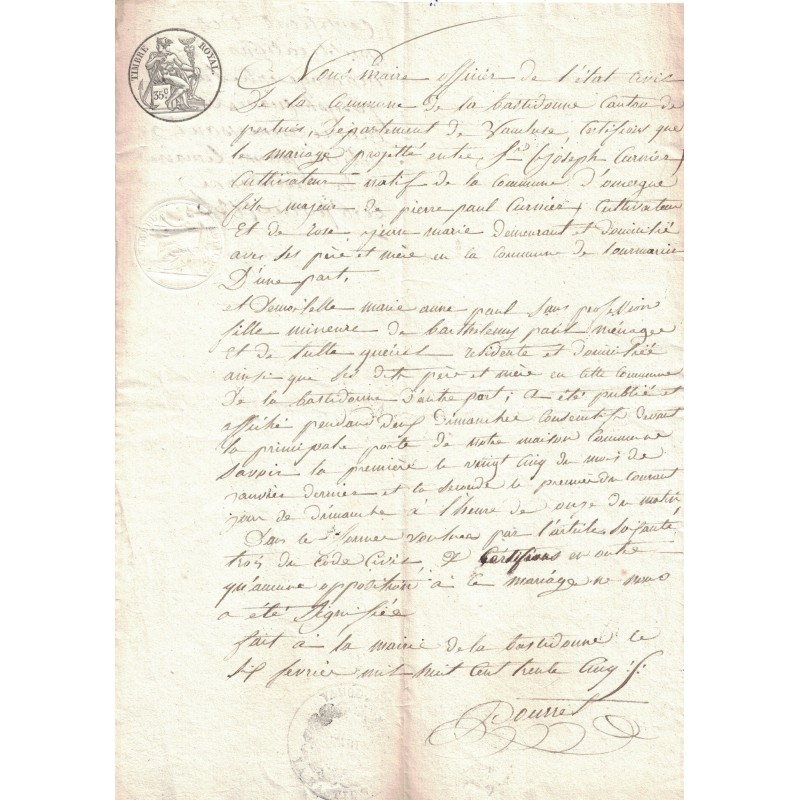 TIMBRE ROYAL
35 c
Nous Maire officier de l'état civil
De la Commune de la bastidonne Canton de
pertuis, Departement de Vaucluse certifions que
le mariage projetté entre Sr. Joseph Curnier
Cultivateur natif de la Commune d'omergue
fils majeur de pierre paul Curnier Cultivateur
Et de rose jeune marie demeurant et domicilié
avec ses père et mère en la Commune de lourmarin
D'une part,
et Demoiselle marie anne paul sans profession
fille mineure de barthelemy paul ménager
Et de résidente et domiciliée
ainsi que ses dits père et mère en cette Commune
De la bastidonne D'autre part; a été publié et
affiché pendant Deux Dimanches Consecutifs devant
la principale porte de notre maison Commune
Savoir la première le vingt cinq du mois de
janvier dernier et la seconde le premier du courant
jour de dimanche à l'heure de onze du matin
Dans les formes voulues par l'article soixante
trois du Code Civil & Certifions en outre
qu'aucune opposition à ce mariage ne nous
a été Signifiée
fait à la mairie de la bastidonne le
fevrier mil huit cent trente cinq
Pourret